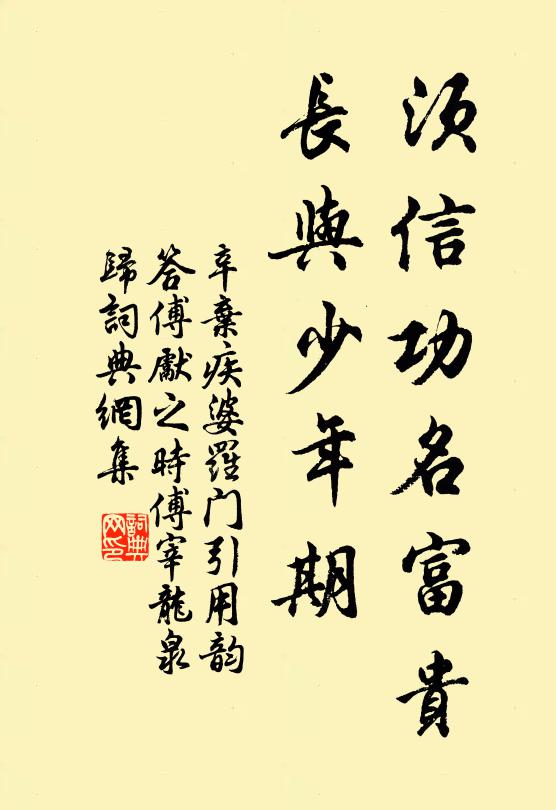 須信功名富貴
長與少年期
辛棄疾婆羅门引用韵
答傅巖之時傅宰龍泉
歸詞典網集
詞典网印